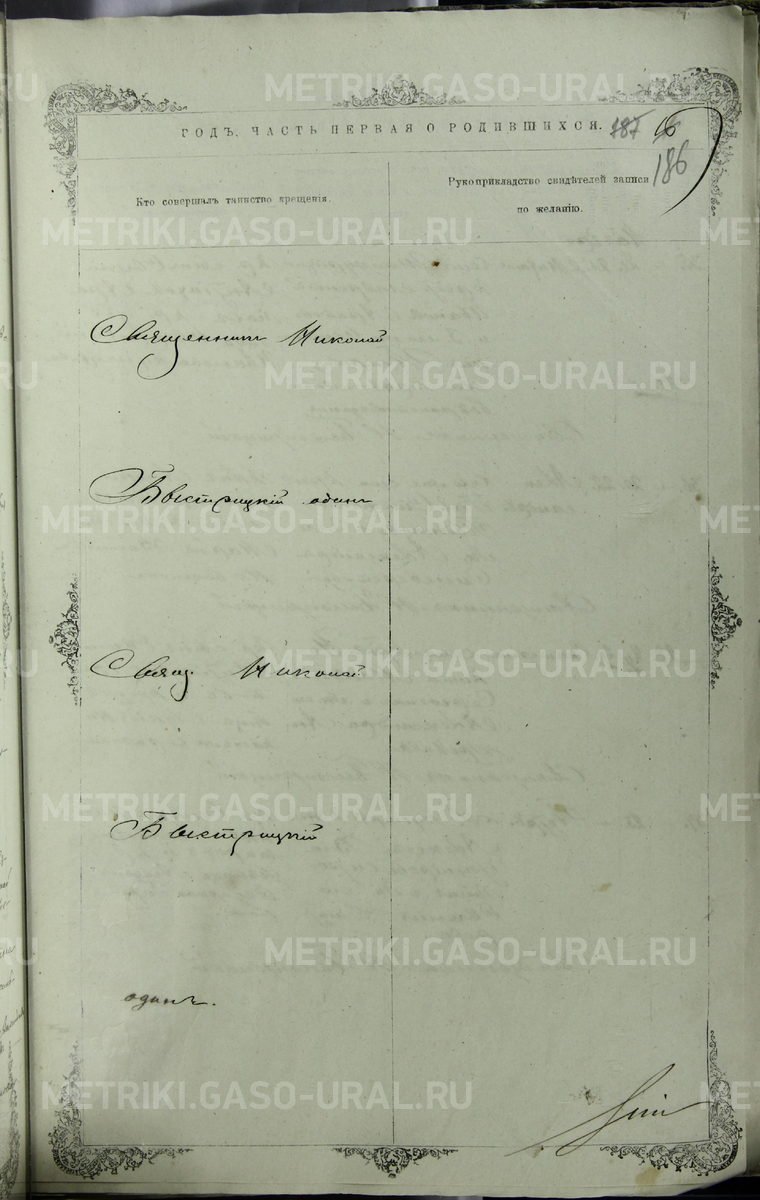 ГОДЪ. ЧАСТЬ ПЕРВАЯ О РОДИВШИХСЯ. 187
186
Кто совершалъ таинство крещенія.
Рукоприкладство свидѣтелей записи
по желанію.
Священникъ Николай
Быстрицкій одинъ
Свящ. Николай
Быстрицкій
одинъ.
METRIKI.GASO-URAL.RU